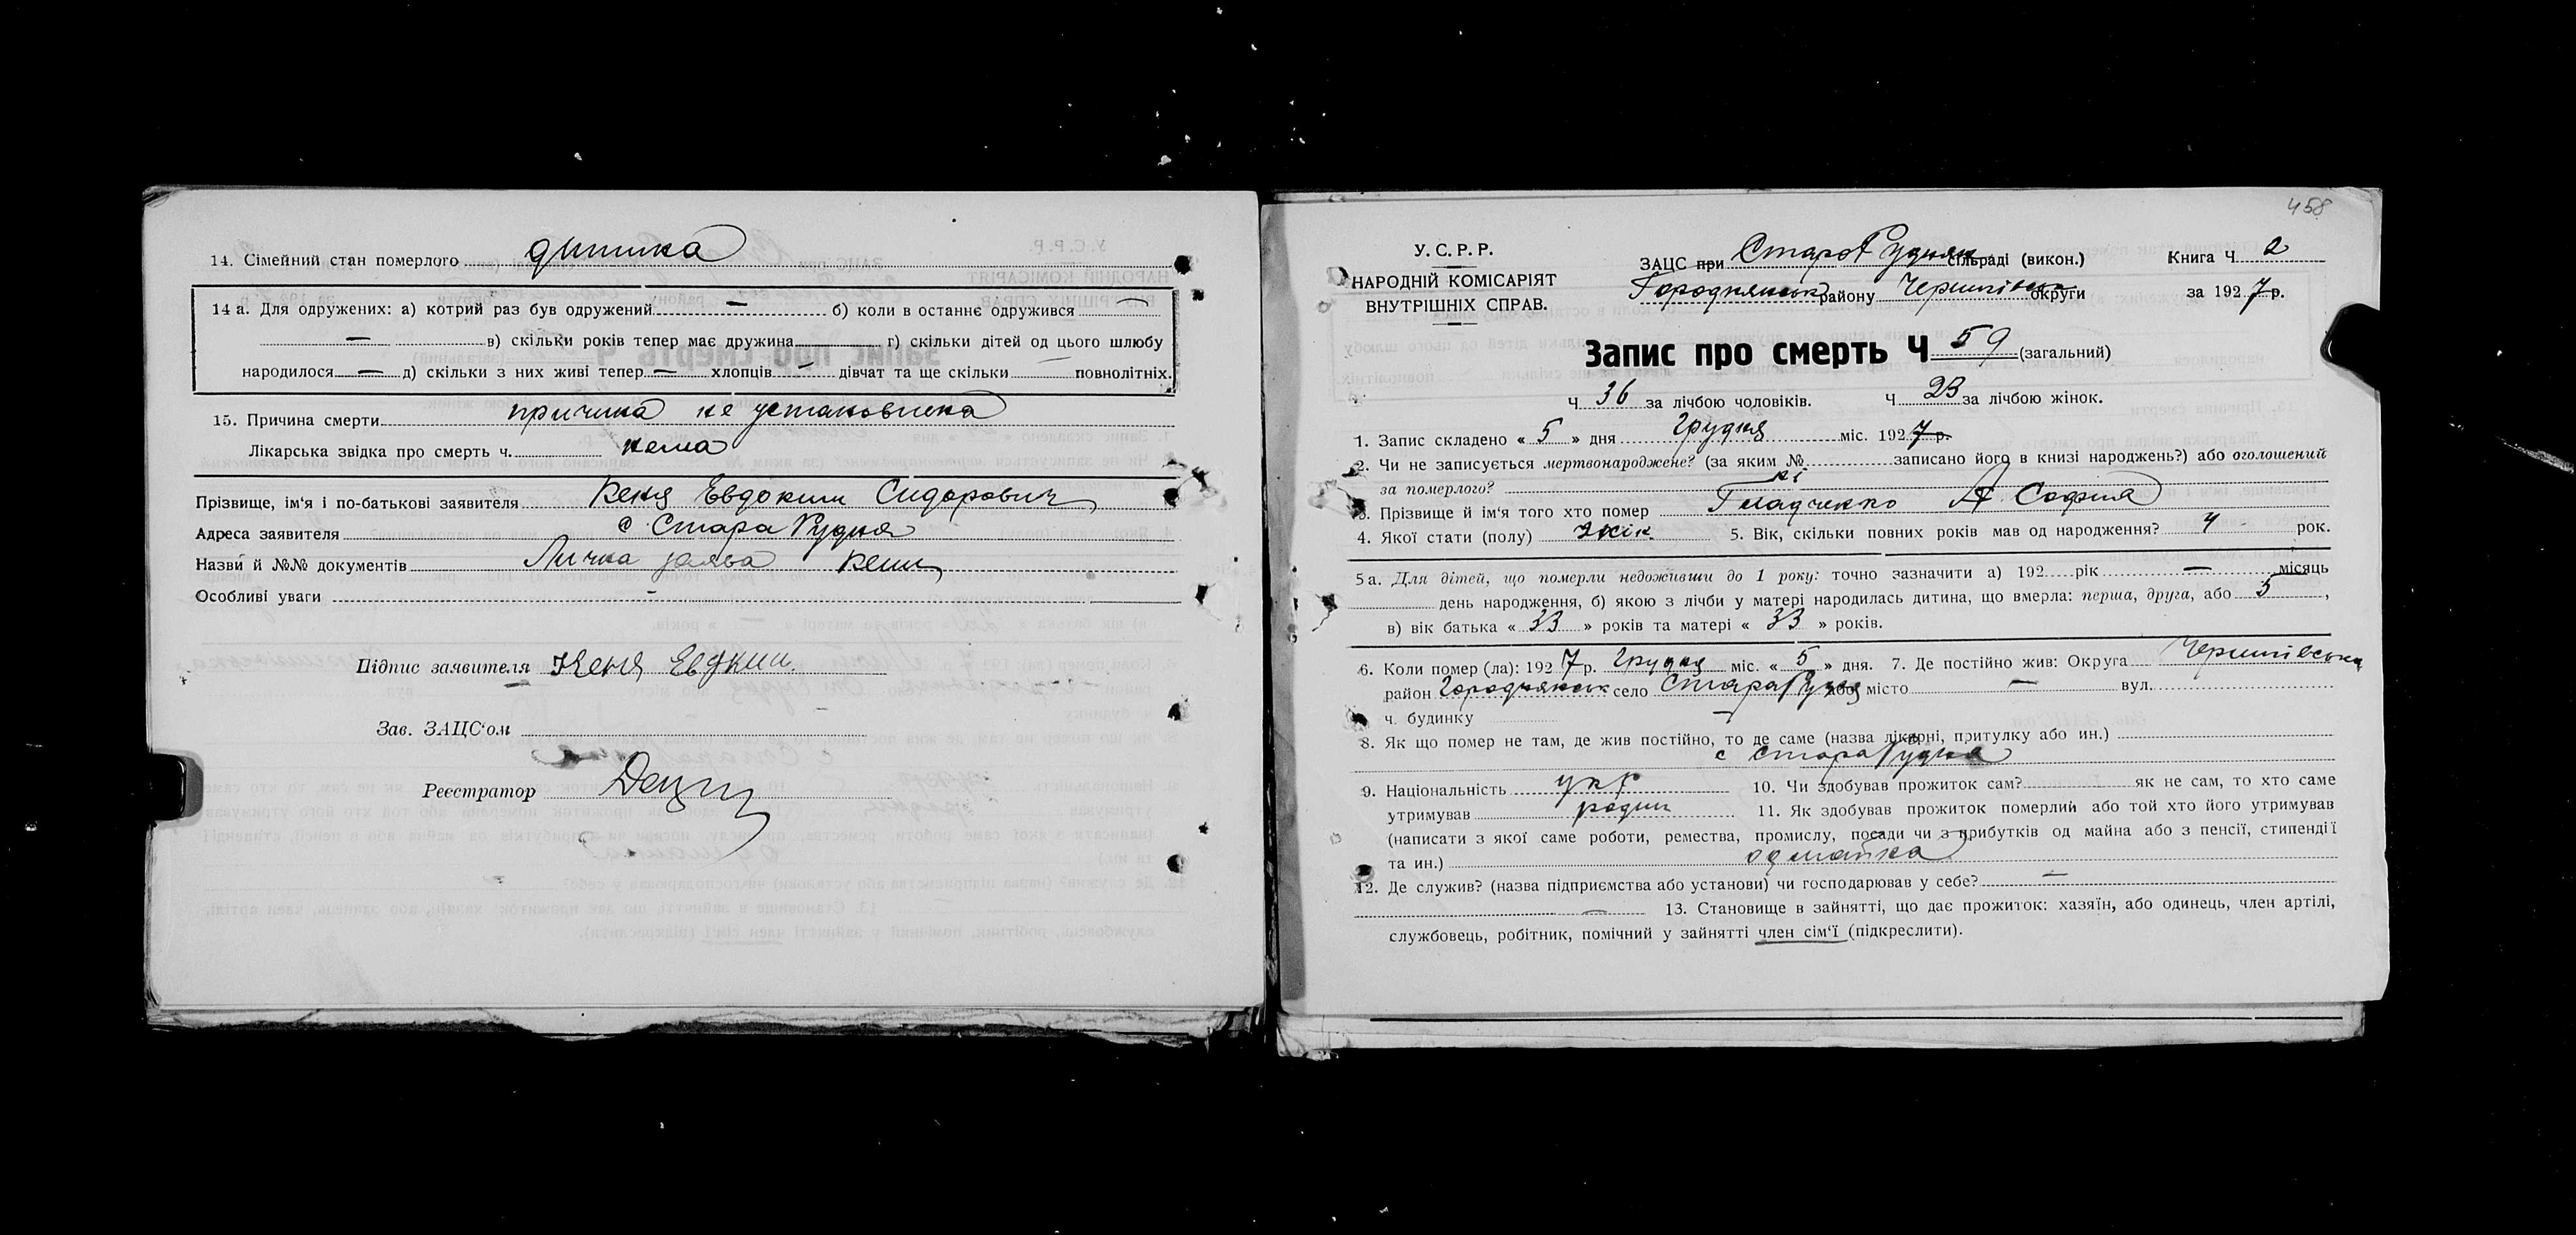 14. Сімейний стан померлого дитина
14 а. Для одружених: а) котрий раз був одружений — б) коли в останнє одружився —
— в) скільки років тепер має дружина г) скільки дітей од цього шлюбу
народилося — д) скільки з них живі тепер — хлопців — дівчат та ще скільки повнолітніх.
15. Причина смерти причина не установлена
Лікарська звідка про смерть ч. нема
Прізвище, ім'я і по-батькові заявителя Кеня Евдоким Сидорович
Адреса заявителя с Стара Рудня
Назви й №№ документів Лична заява Кени
Особливі уваги -
Підпис заявителя Кеня Евдким.
Зав. ЗАЦС'ом
Реєстратор
458
У.С.Р.Р.
НАРОДНІЙ КОМІСАРІЯТ
ВНУТРІШНІХ СПРАВ.
ЗАЦС при Старо Рудняк сільраді (викон.) Книга Ч 2
Городнянськ району Чернигівськ округи за 1927 р.
Запис про смерть Ч 59 (загальний)
Ч 36 за лічбою чоловіків. Ч 23 за лічбою жінок.
1. Запис складено « 5 » дня Грудня міс. 1927 р.
2. Чи не записується мертвонароджене? (за яким № записано його в книзі народжень?) або оголошений
за померлого? ні
3. Прізвище й ім'я того хто помер Гладченко София
4. Якої стати (полу) жін. 5. Вік, скільки повних років мав од народження? 4 рок.
5 а. Для дітей, що померли недоживши до 1 року: точно зазначити а) 192 рік — місяць
день народження, б) якою з лічби у матері народилась дитина, що вмерла: перша, друга, або 5,
в) вік батька « 33 » років та матері « 33 » років.
6. Коли помер (ла): 1927 р. Грудня міс. « 5 » дня. 7. Де постійно жив: Округа Чернигівська
район Городнянськ село Стара Рудня або місто — вул.
ч. будинку —
8. Як що помер не там, де жив постійно, то де саме (назва лікарні, притулку або ин.)
с Стара Рудня
9. Національність укр 10. Чи здобував прожиток сам? як не сам, то хто саме
утримував родич 11. Як здобував прожиток померлий або той хто його утримував
(написати з якої саме роботи, ремества, промислу, посади чи з прибутків од майна або з пенсії, стипендії
та ин.) од майна
12. Де служив? (назва підприємства або установи) чи господарював у себе? —
— 13. Становище в зайнятті, що дає прожиток: хазяїн, або одинець, член артілі,
службовець, робітник, помічний у зайнятті член сім'ї (підкреслити).